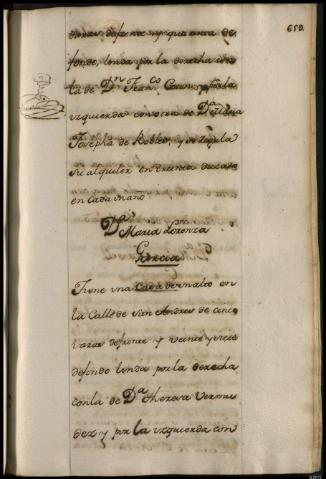 650.
varas de frente y quarenta de
fondo, linda por la derecha con
la de Dn. Franco. y por la
izquierda con otra de Da. Maria
Josepha de Robles, y se regula
su alquiler en treinta ducados
en cada un año
Da. Maria Lorenza
Garcia
Tiene una Casa de vn alto en
la Calle de San Andres de cinco
varas de frente y veinte y siete
de fondo linda por la derecha
con la de Da. Theresa Vermu
dez y por la izquierda con